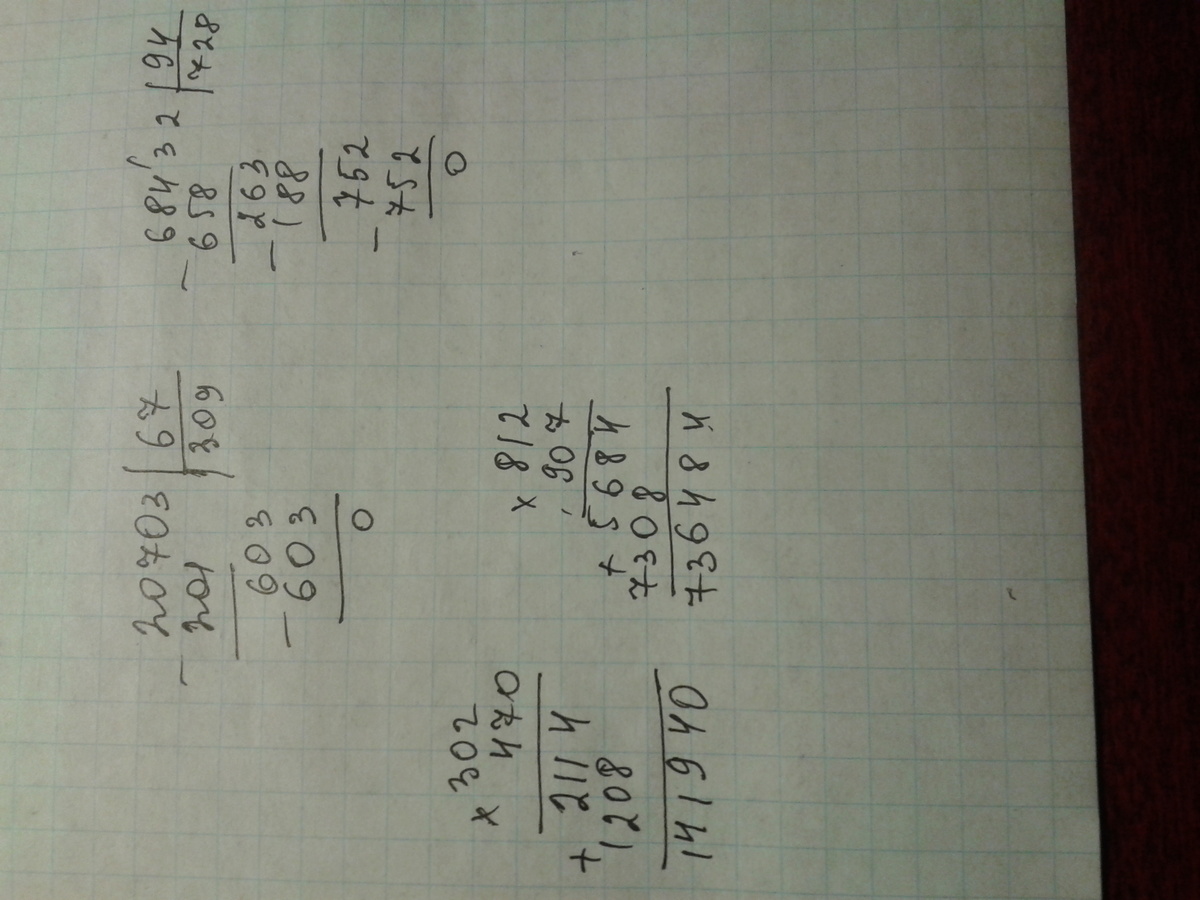 20703 | 67
− 201 | 309
− 603
603
0
− 684'32 | 94
658 | 728
− 263
188
− 752
752
0
× 302
470
+ 2114
1208
141940
× 812
907
+ 5684
7308
736484